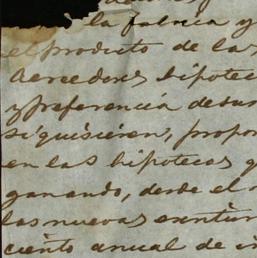 la fabrica y
el producto de las
Acreedores hipotec
y preferencia de sus
si quisieren, propor
en las hipotecas q
ganando, desde el
las nuevas
ciento anual de in